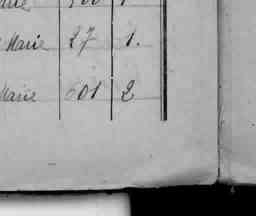 Marie 27 1.
Marie 601 2